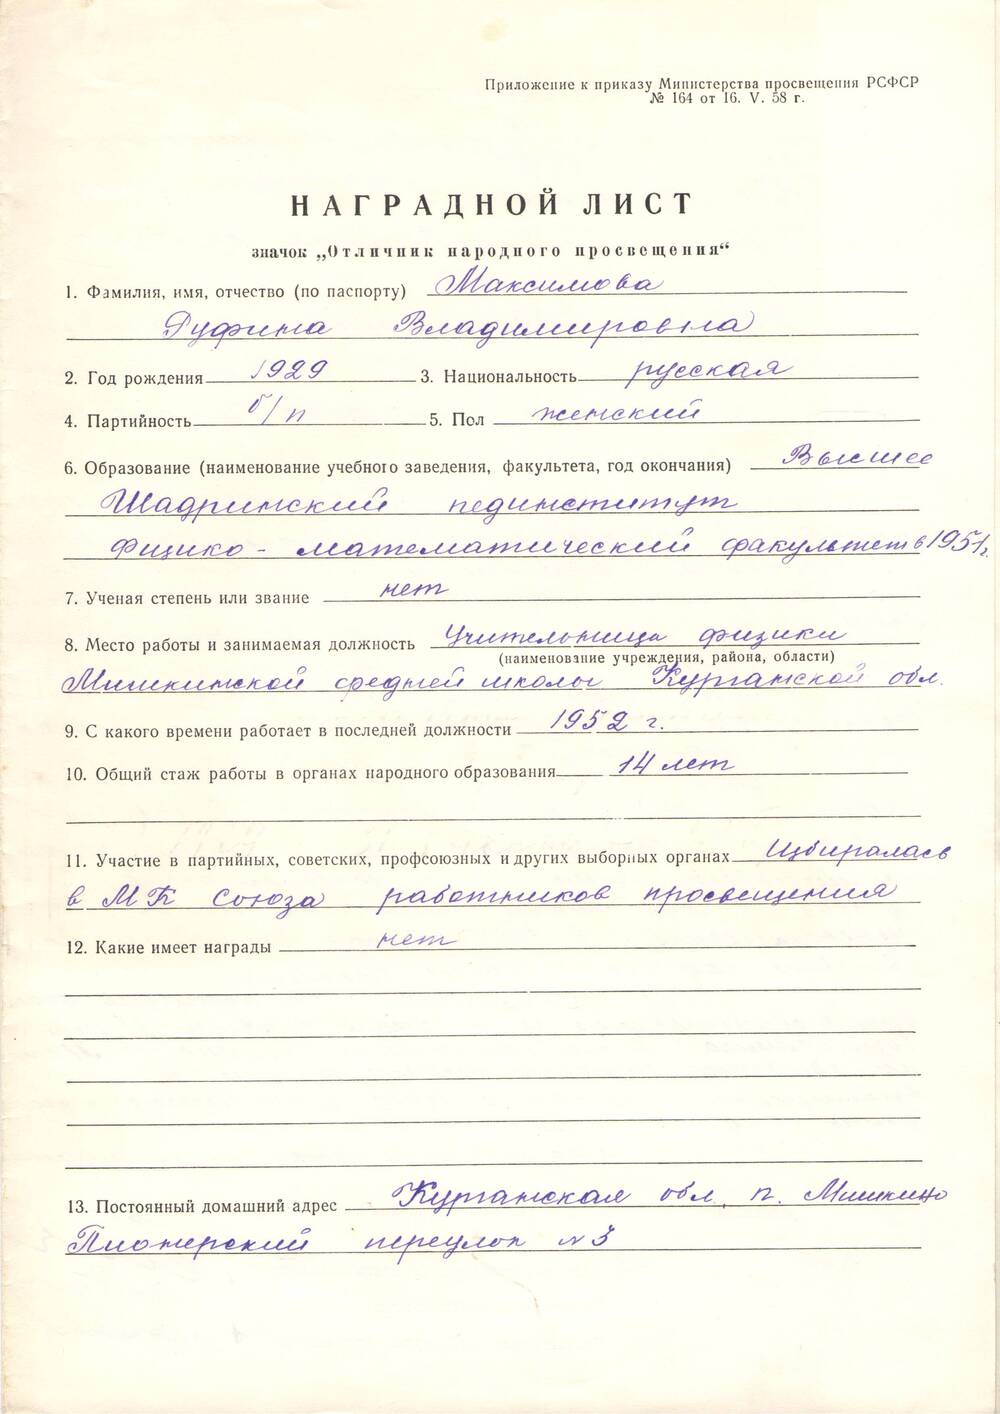 Приложение к приказу Министерства просвещения РСФСР
№ 164 от 16. V. 58 г.
НАГРАДНОЙ ЛИСТ
значок „Отличник народного просвещения“
1. Фамилия, имя, отчество (по паспорту) Максимова
Руфина Владимировна
2. Год рождения 1929 3. Национальность русская
4. Партийность б/п 5. Пол женский
6. Образование (наименование учебного заведения, факультета, год окончания) Высшее
Шадринский пединститут
Физико-математический факультет в 1951г.
7. Ученая степень или звание нет
8. Место работы и занимаемая должность Учительница физики
(наименование учреждения, района, области)
Мишкинской средней школы Курганской обл.
9. С какого времени работает в последней должности 1952 г.
10. Общий стаж работы в органах народного образования 14 лет
11. Участие в партийных, советских, профсоюзных и других выборных органах Избиралась
в МК Союза работников просвещения
12. Какие имеет награды нет
13. Постоянный домашний адрес Курганская обл. п. Мишкино
Пионерский переулок № 3